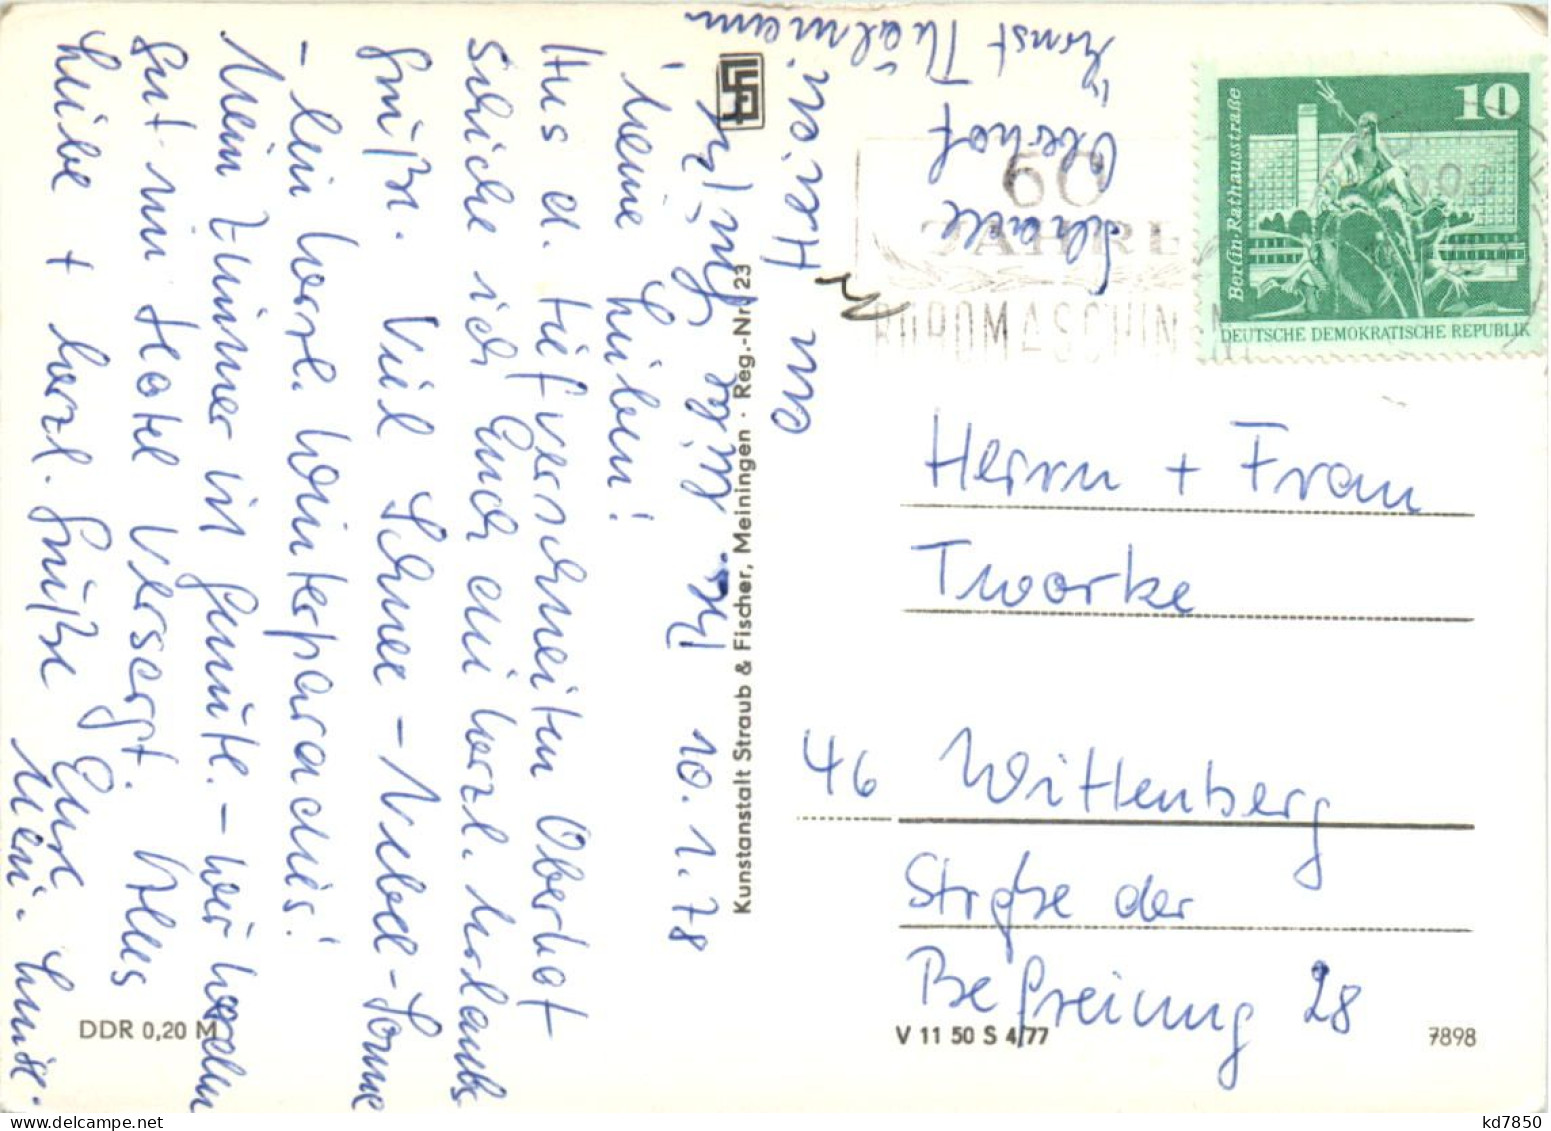 Ernst Thälmann
Oberhof
Meine Lieben!
Aus d. tief verschneiten Oberhof
schicke ich Euch ein herzl. Urlaubs
grüße. Viel Schnee - Nebel - Sonne
- ein herzl. Winterparadies!
Mein Zimmer ist gemütl. - wir werden
gut im Hotel versorgt. Alles
Liebe + herzl. Grüße Eure
10.1.78
Kunstanstalt Straub & Fischer, Meiningen · Reg.-Nr. 23
DDR 0,20 M
60
JAHRE
BÜROMASCHINEN
10
Berlin, Rathausstraße
DEUTSCHE DEMOKRATISCHE REPUBLIK
Herrn + Frau
Tworke
46 Wittenberg
Straße der
Befreiung 28
V 11 50 S 4/77
7898
kd7850